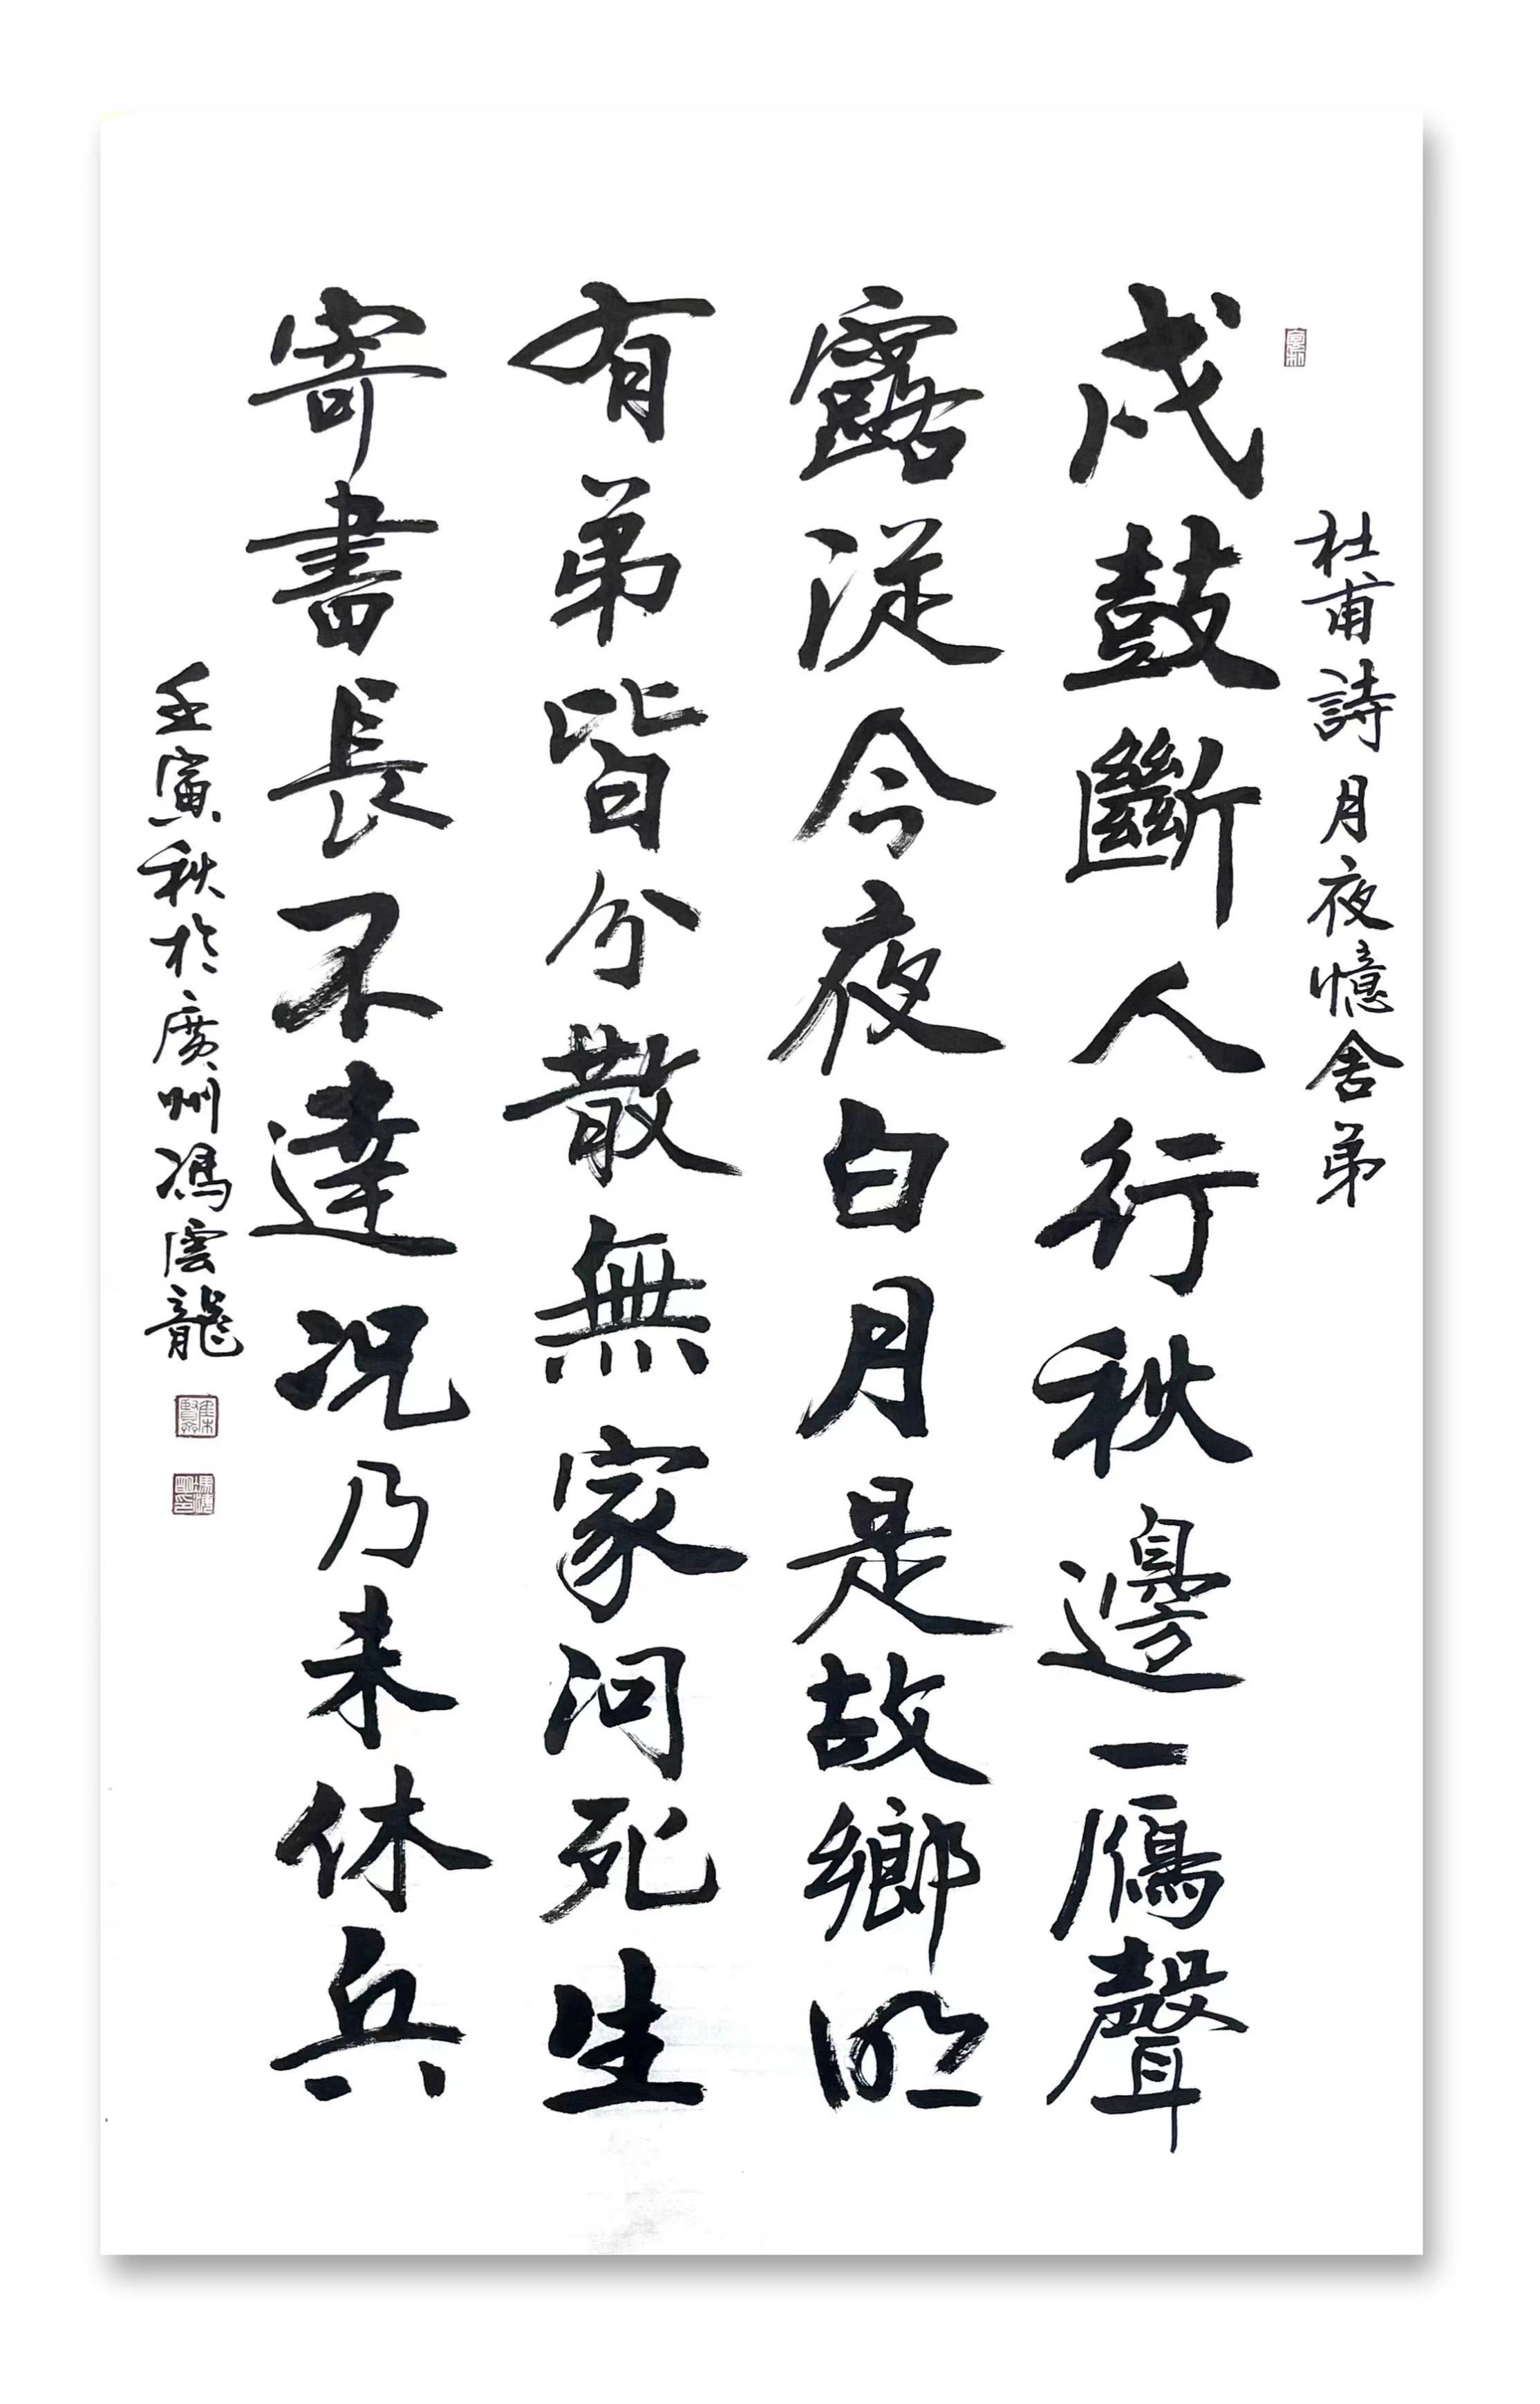 杜甫詩月夜憶舍弟
戍鼓斷人行秋邊一鴈聲
露從今夜白月是故鄉明
有弟皆分散無家問死生
寄書長不達況乃未休兵
壬寅秋於廣州馮雲龍